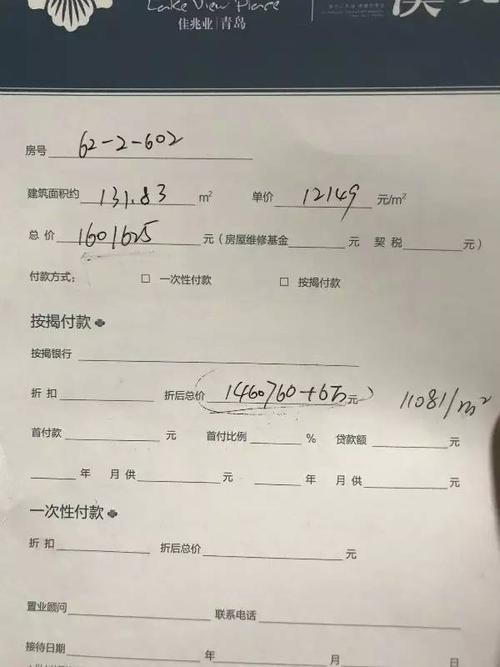 Lake View Place
佳兆业|青岛
房号 62-2-602
建筑面积约 131.83 m² 单价 12149 元/m²
总价 1601625 元(房屋维修基金 元 契税 元)
付款方式: □ 一次性付款 □ 按揭付款
按揭付款
按揭银行
折扣 折后总价 1460760+6万元 11081/m²
首付款 元 首付比例 % 贷款额 元
年 月供 元 年 月供 元
一次性付款
折扣 折后总价 元
置业顾问 联系电话
接待日期 年 月 日